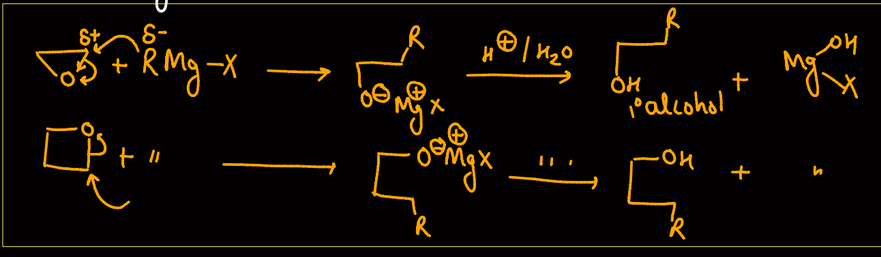 δ+ δ- R
O + RMg-X → O⊖Mg⊕X H⊕/H₂O → R OH 1° alcohol + Mg OH X
O + " → O⊖Mg⊕X R ''' → OH R + "